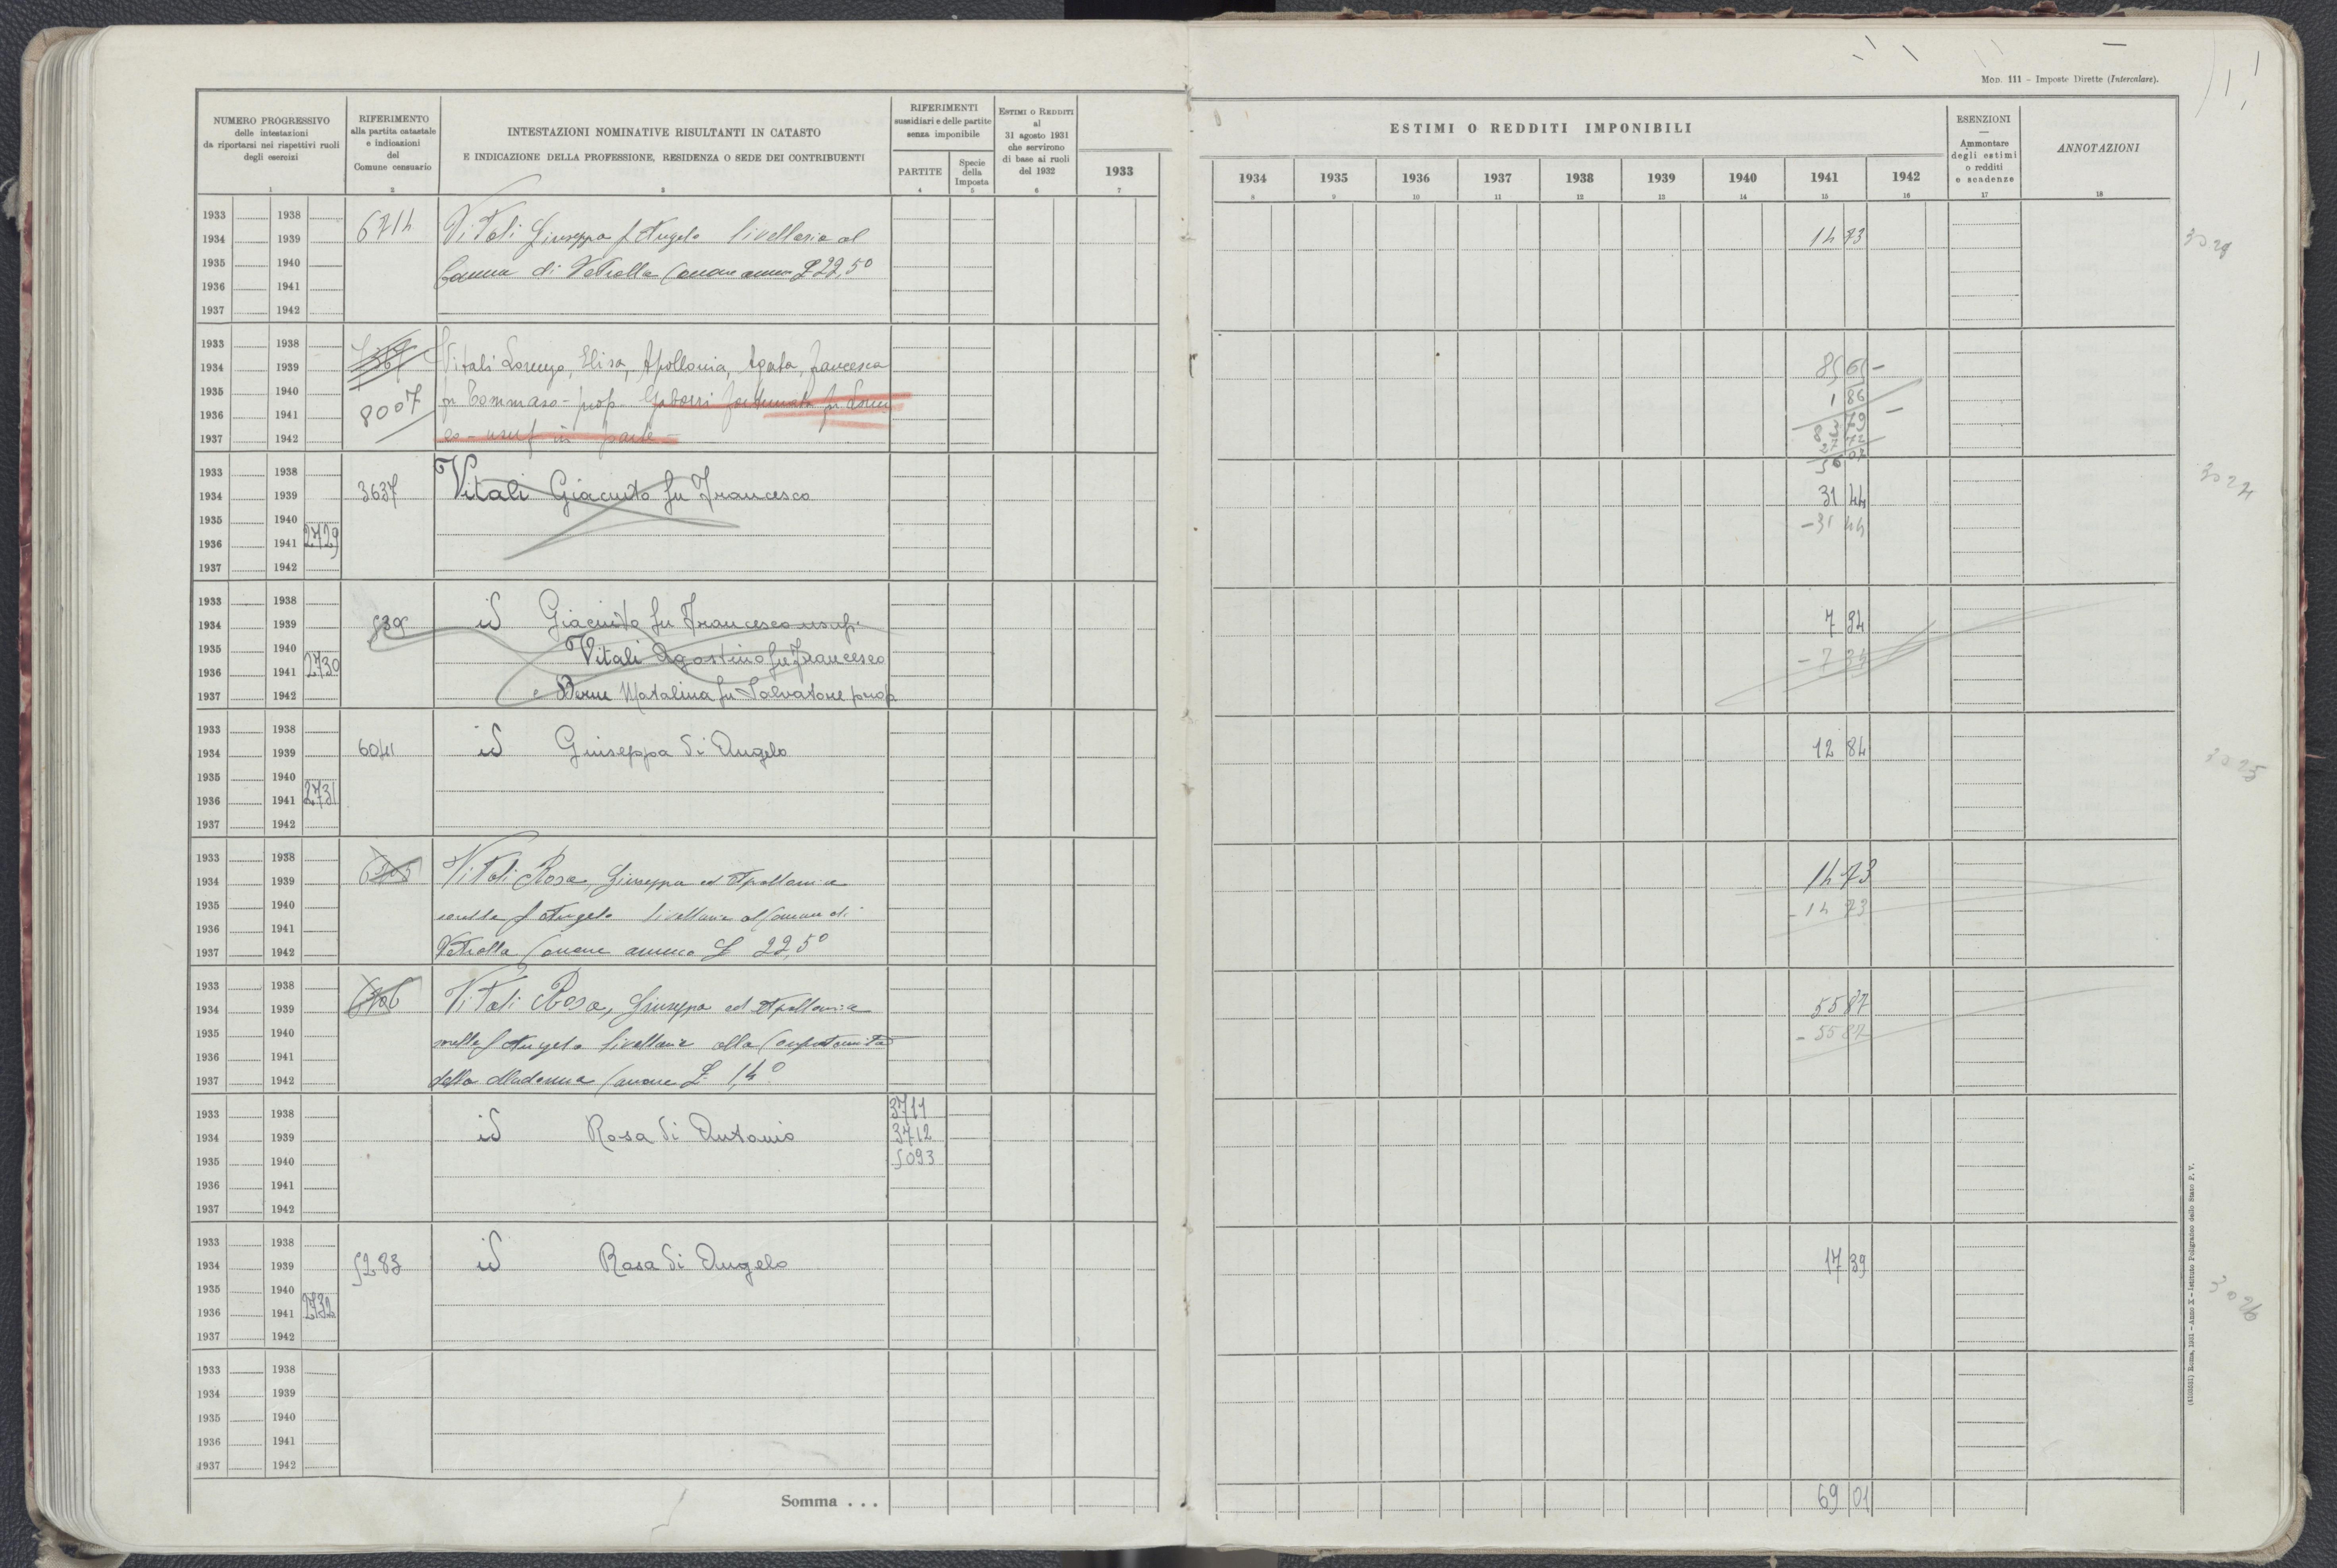 Mod. 111 – Imposte Dirette (Intercalare).
NUMERO PROGRESSIVO
delle intestazioni
da riportarsi nei rispettivi ruoli
degli esercizi
1
RIFERIMENTO
alla partita catastale
e indicazioni
del
Comune censuario
2
INTESTAZIONI NOMINATIVE RISULTANTI IN CATASTO
E INDICAZIONE DELLA PROFESSIONE, RESIDENZA O SEDE DEI CONTRIBUENTI
3
RIFERIMENTI
sussidiari e delle partite
senza imponibile
PARTITE
4
Specie
della
Imposta
5
ESTIMI O REDDITI
al
31 agosto 1931
che servirono
di base ai ruoli
del 1932
6
1933
7
ESTIMI O REDDITI IMPONIBILI
1934 1935 1936 1937 1938 1939 1940 1941 1942
8 9 10 11 12 13 14 15 16
ESENZIONI
—
Ammontare
degli estimi
o redditi
e scadenze
17
ANNOTAZIONI
18
1933 1938
1934 1939 6714 Vitali Giuseppa f Angelo livellaria al 14 73
1935 1940 Comune di Vetralla Canone annuo £ 22,50
1936 1941
1937 1942
1933 1938
1934 1939 Vitali Lorenzo, Elisa, Apollonia, Agata, Francesca 85 65 –
1935 1940 8007 fu Tommaso – prop. fortunata fu 1 86
1936 1941
1937 1942 usuf in parte –
1933 1938
1934 1939 3637 Vitali Giacinto fu Francesco 31 44
1935 1940 – 31 44
1936 1941 2729
1937 1942
1933 1938
1934 1939 id Giacinto fu Francesco usuf. 7 34
1935 1940 Vitali Agostino fu Francesco – 7 34
1936 1941 2730
1937 1942 e Natalina fu Salvatore prop
1933 1938
1934 1939 6041 id Giuseppa di Angelo 12 84 3025
1935 1940
1936 1941 2731
1937 1942
1933 1938
1934 1939 Vitali Rosa, Giuseppa ed Apollonia 14 73
1935 1940 sorelle f Angelo livellarie al Comune di – 14 73
1936 1941
1937 1942 Vetralla Canone annuo £ 22,50
1933 1938
1934 1939 Vitali Rosa, Giuseppa ed Apollonia 55 87
1935 1940 sorelle f Angelo livellarie alla – 55 87
1936 1941
1937 1942 della Madonna Canone £. 1,40
1933 1938 3711
1934 1939 id Rosa di Antonio 3712
1935 1940 5093
1936 1941
1937 1942
1933 1938
1934 1939 5283 id Rosa di Angelo 17 39
1935 1940 3026
1936 1941 2732
1937 1942
1933 1938
1934 1939
1935 1940
1936 1941
1937 1942
Somma . . . 69 01
(4103531) Roma, 1931 – Anno X – Istituto Poligrafico dello Stato P. V.